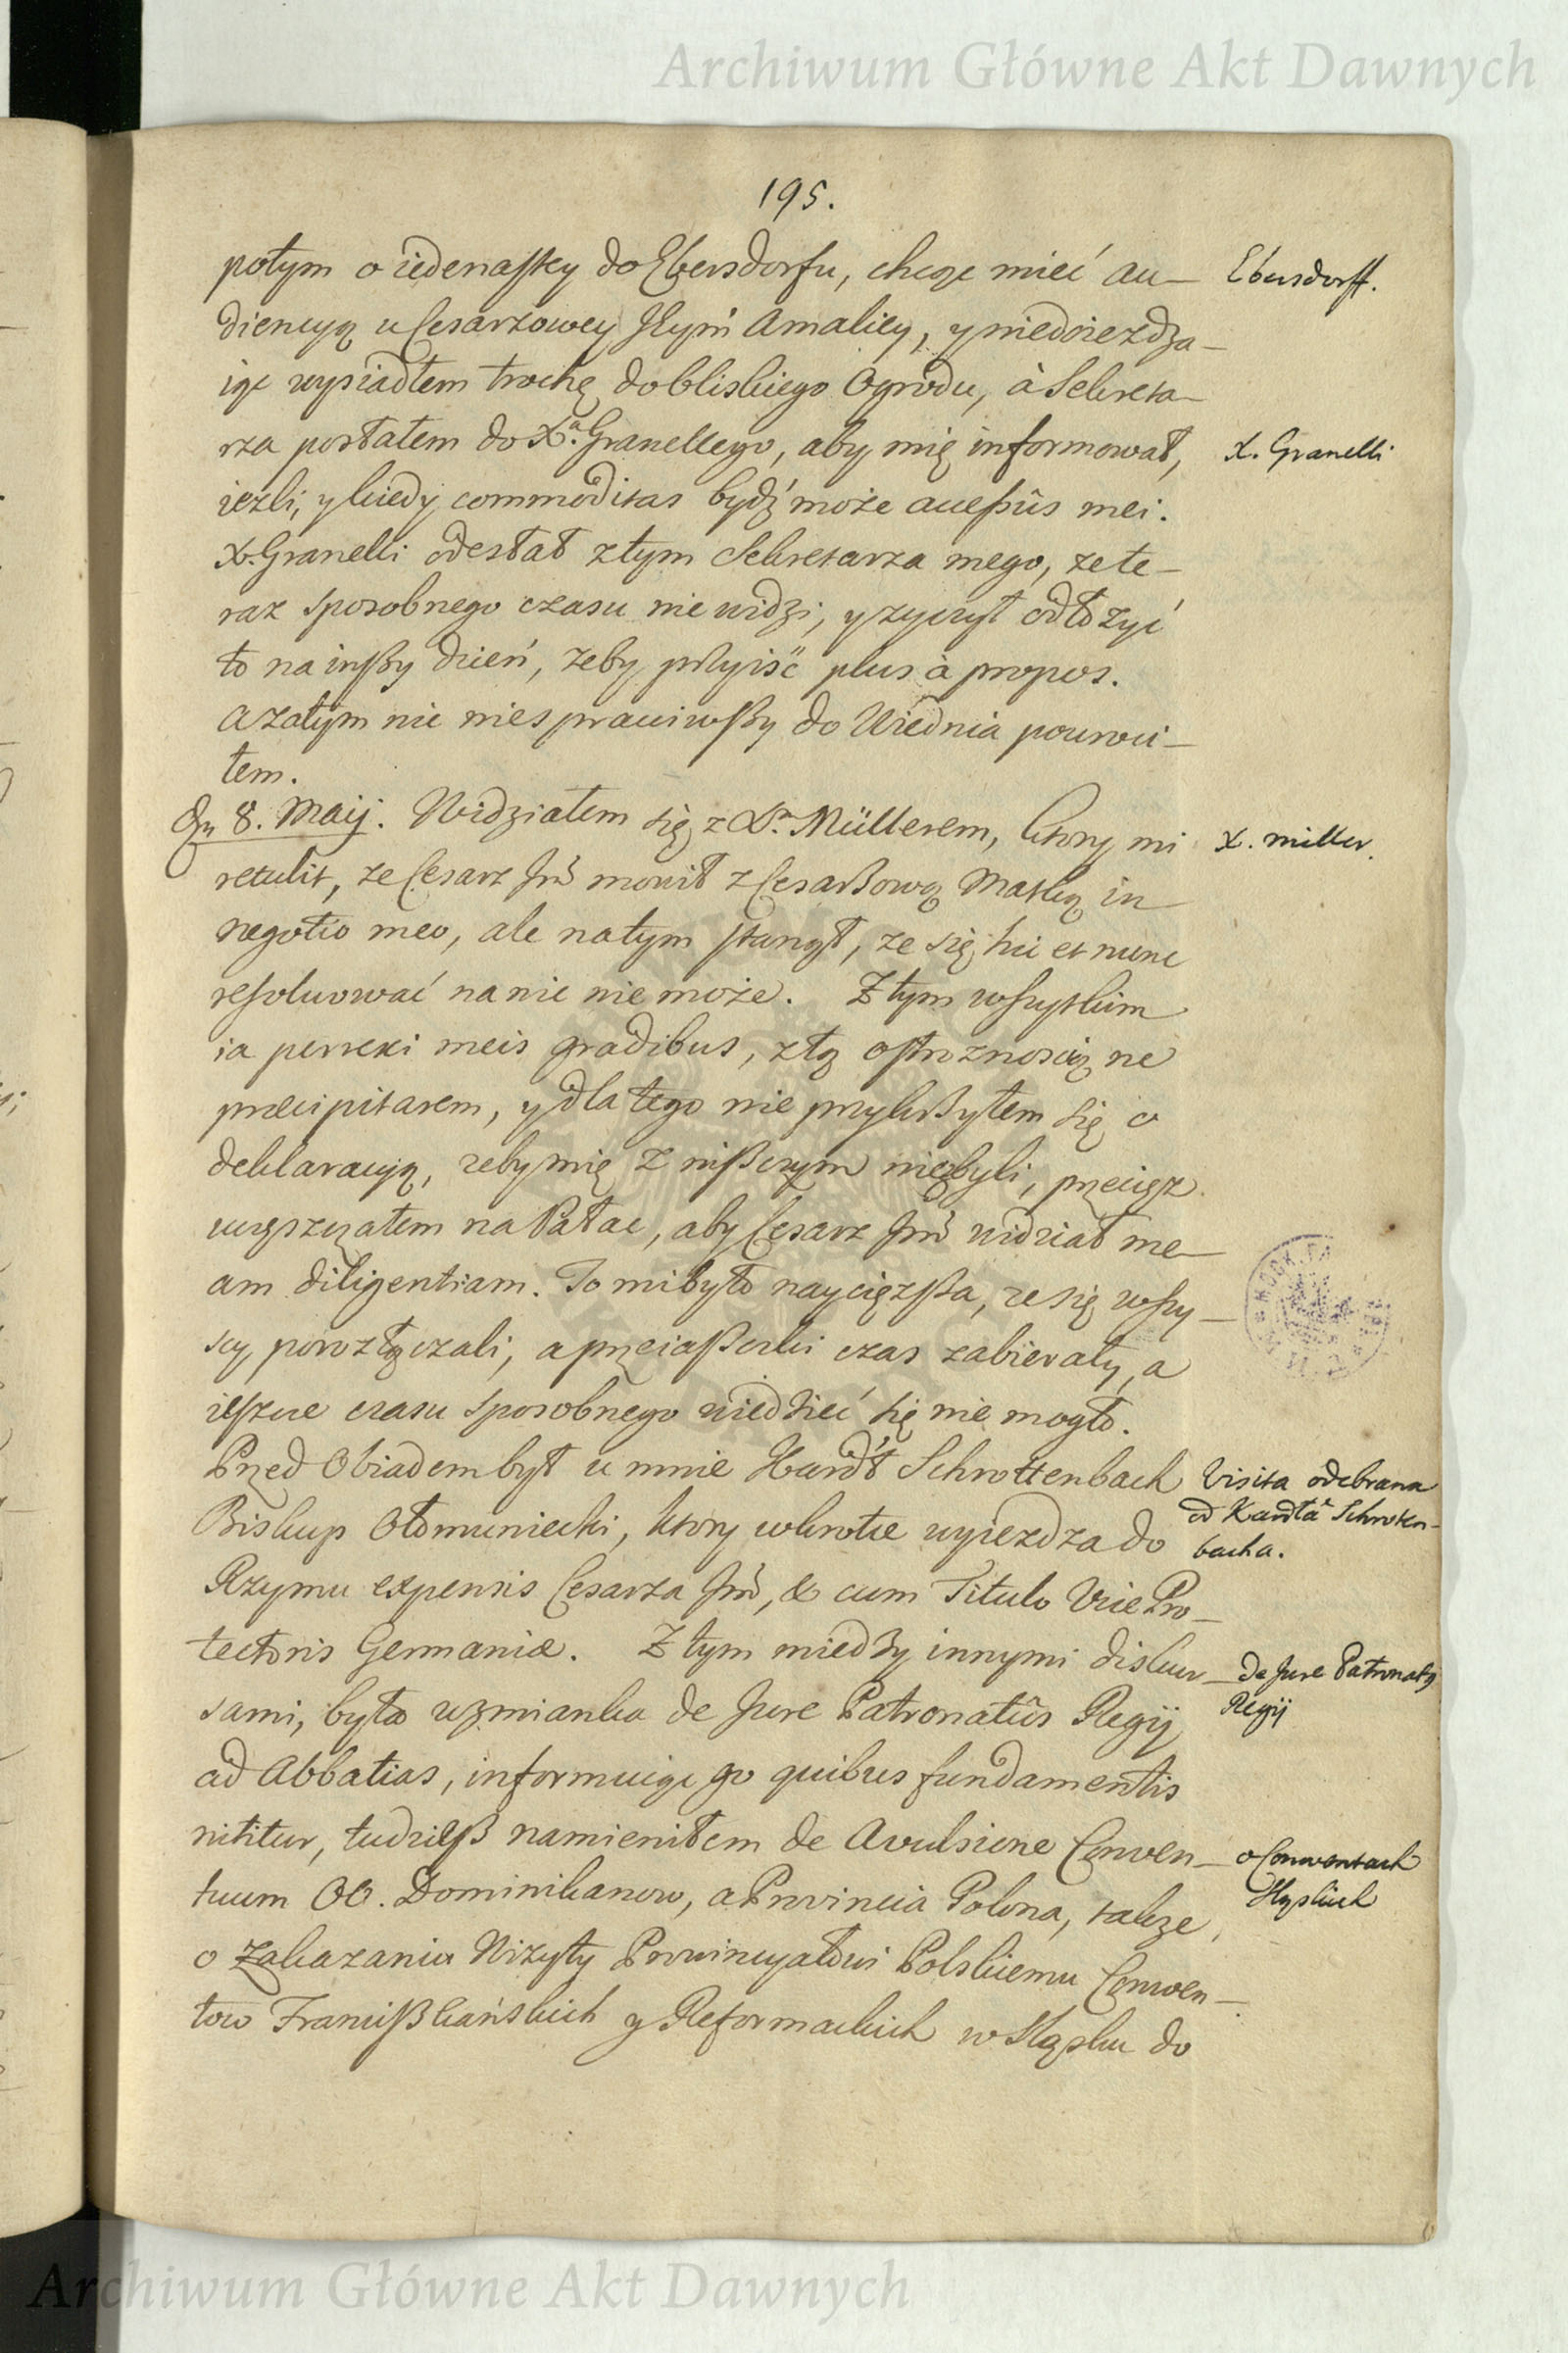 Archiwum Główne Akt Dawnych
195.
potym o iedenastey do Ebersdorfu, chcąc mieć au-
Ebersdorff.
diencyą u Cesarzowey Jeym̃ Amaliey, y niedoiezdza-
iąc wysiadłem trochę do bliskiego Ogrodu, à Sekreta-
rza posłałem do Xa. Granellego, aby mię informował,
X. Granelli
iezli, y kiedy commoditas bydź może accessûs mei.
X. Granelli odesłał z tym Sekretarza mego, ze te-
raz sposobnego czasu nie widzi, y zyczył odłozyć
to na inszy dzień, zeby przyiść plus à propos.
A zatym nic niesprawiwszy do Wiednia powroci-
łem.
Dn 8. Maij. Widziałem się z Xm. Müllerem, ktory mi
X. Miller.
retulit, ze Cesarz Jm̃ mowił z Cesarzową Matką in
negotio meo, ale na tym stanął, ze się hic et nunc
resolwować na nic nie może. Z tym wszytkim
ia perrexi meis gradibus, z tą ostroznością ne
præcipitarem, y dla tego nie przykrzyłem się o
deklaracyą, zeby mię z niszczym nie zbyli, przeciąz
uczęszczałem na Pałac, aby Cesarz Jm̃ widział me-
am diligentiam. To mi było naycięższa, ze się wszy-
scy porozłączali, a przeiaszczki czas zabierały, a
ieszcze czasu sposobnego wiedzieć się nie mogło.
Przed Obiadem był u mnie Kardł Schrottenbach
Visita odebrana
od Kardła Schroten-
bacha.
Biskup Ołomuniecki, ktory wkrotce wyiezdza do
Rzymu expensis Cesarza Jm̃, & cum Titulo Vice Pro-
tectoris Germaniæ. Z tym miedzy innymi diskur-
de Jure Patronatq
Regij
sami, była wzmianka de Jure Patronatûs Regij
ad Abbatias, informuiąc go quibus fundamentis
nititur, tudziesz namieniłem de Avulsione Conven-
o Conwentach
Sląskich
tuum OO. Dominikanow, a Provincia Polona, takze
o zakazaniu Wizyty Prowincyałowi Polskiemu Conwen-
tow Franciszkańskich y Reformackich w Sląsku do
Archiwum Główne Akt Dawnych